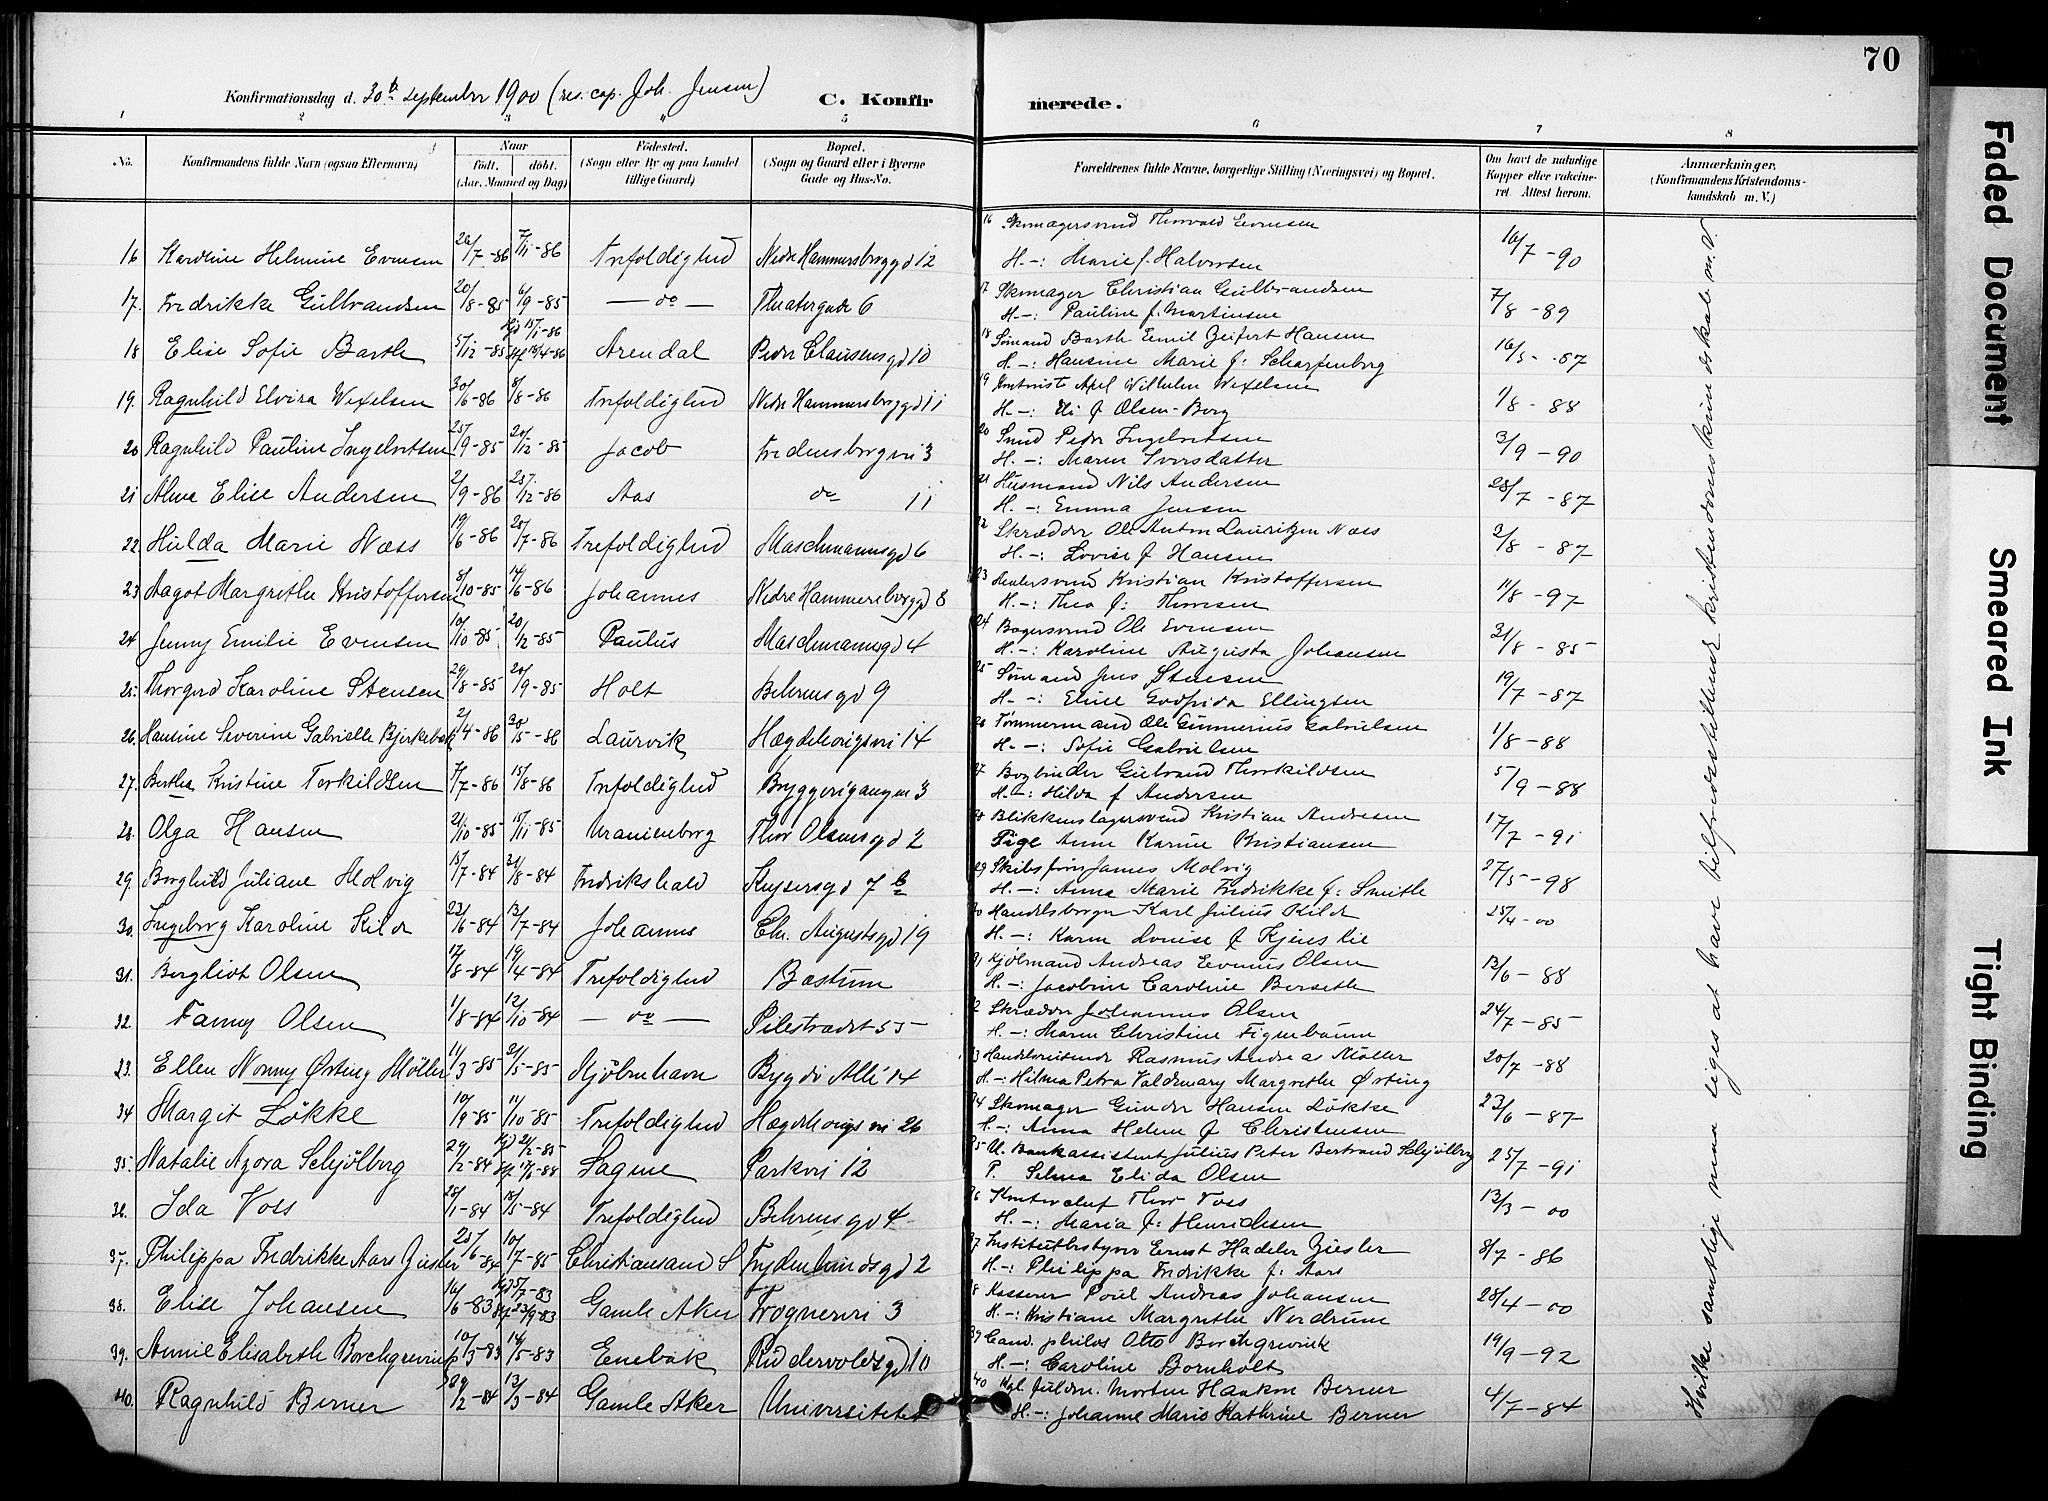 70
Konfirmationsdag d. 30te september 1900 (res. cap. Joh. Jensen)
C. Konfirmerede.
1 2 3 4 5 6 7 8
No.
Konfirmandens fulde Navn (ogsaa Efternavn)
Naar født. døbt. (Aar, Maaned og Dag)
Fødested. (Sogn eller By og paa Landet tillige Gaard)
Bopæl. (Sogn og Gaard eller i Byerne Gade og Hus-No.
Forældrenes fulde Navne, borgerlige Stilling (Næringsvei) og Bopæl.
Om havt de naturlige Kopper eller vaccineret Attest herom.
Anmærkninger, (Konfirmandens Kristendomskundskab m. V.)
16 Karoline Helmine Evensen 26/7-86 7/11-86 Trefoldighed Nedre Hammersborggd 12 16 Skomagersvend Thorvald Evensen 16/7-90
H.-: Marie f. Halvorsen
17. Fredrikke Gulbrandsen 20/8-85 6/9-85 — do — Theatergade 6 17 Skomager Christian Gulbrandsen 7/8-89
H.-: Pauline f. Martinsen
18 Elise Sofie Barth 5/12-85 Hjd 15/1-86 16/4-86 Arendal Peder Clausensgd 10 18 Sømand Barth Emil Zeifert Hansen 16/5-87
H.-: Hansine Marie f: Scharfenberg
19. Ragnhild Elvira Wexelsen 30/6-86 8/8-86 Trefoldighed Nedre Hammersborggd 11 19 Axel Wilhelm Wexelsen 1/8-88
H.-: f Olsen-Borg
20 Ragnhild Pauline Ingebretsen 25/9-85 20/12-85 Jacob Fredensborgvei 3 20 Smed Peder Ingebretsen 3/9-90
H.-: Maren Iversdatter
21 Alma Elise Andersen 2/9-86 25/12-86 Aas do 11 21 Husmand Nils Andersen 28/7-87
H.-: Emma Jensen
22 Hulda Marie Næss 19/6-86 25/7-86 Trefoldighed Maschmannsgd 6 22 Skrædder Ole Anton Lauritzen Næss 2/8-87
H.-: Lovise f Hansen
23 Aagot Margrethe Kristoffersen 8/10-85 14/6-86 Johannes Nedre Hammersborggd 8 23 Kristian Kristoffersen 11/8-97
H.-: Thea f: Thoresen
24 Jenny Emilie Evensen 10/10-85 20/12-85 Paulus Maschmannsgd 4 24 Bagersvend Ole Evensen 31/8-85
H.-: Karoline Augusta Johansen
25. Thorgerd Karoline Stensen 29/8-85 20/9-85 Holt Behrensgd 9 25 Sømand Jens Stensen 19/7-87
H.-: Elise Godfrida Ellingsen
26. Hansine Severine Gabrielle Bjerkebæk 2/4-86 30/5-86 Laurvik Hægdehougsvei 14 26 Tømmermand Ole Gunnerius Gabrielsen 1/8-88
H.-: Sofie Gabrielsen
27. Bertha Kristine Torkildsen 7/7-86 15/8-86 Trefoldighed Bryggerigangen 3 27 Bogbinder Gulbrand Thorkildsen 5/9-88
H.-: Hilda f Andersen
28. Olga Hansen 21/10-85 15/11-85 Uranienborg Thor Olsensgd 2 28 Blikkenslagersvend Kristian Andresen 17/7-91
Pige Anne Karine Kristiansen
29. Borghild Juliane Molvig 15/7-84 21/8-84 Fredrikshald Keysersgd 7 b 29 Skibsfører James Molvig 27/5-98
H.-: Anna Marie Fredrikke f: Smith
30. Ingeborg Karoline Kilde 23/6-84 13/7-84 Johannes Chr. Augustsgd 19 30 Handelsborger Karl Julius Kilde 25/4-00
H.-: Karen Louise f Kjenslie
31. Bergliot Olsen 17/8-84 19/4-84 Trefoldighed Bastum 31 Kjølmand Andreas Evenius Olsen 13/6-88
H.-: Jacobine Caroline Berseth
32. Fanny Olsen 1/8-84 12/10-84 — do — Pilestrædet 55 32 Skrædder Johannes Olsen 24/7-85
H.-: Maren Christine Figenbaum
33. Ellen Nonny Ørting Møller 11/3-85 21/5-85 Kjøbenhavn Bygdø Allé 14 33 Handelsreisende Rasmus Andrea Møller 20/7-88
H.-: Hilma Petra Valdemary Margrethe Ørting
34 Margit Løkke 10/9-85 11/10-85 Trefoldighed Hægdehougsvei 26 34 Skomager Gunder Hansen Løkke 23/6-87
H.-: Anna Helene f Christensen
35. Natalie Azora Schjølberg 29/2-84 Hjd 21/2-85 17/6-88 Sagene Parkvei 12 35 U. Bankassistent Julius Peter Bertrand Schjølberg 25/7-91
P. Selma Elida Olsen
36. Ida Voss 25/1-84 15/5-84 Trefoldighed Behrensgd 4 36 Kontorchef Thor Voss 13/3-00
H.-: Maria f: Henrichsen
37. Philippa Fredrikke Aars Ziesler 25/6-84 10/7-85 Christiansand S Frydenlundsgd 2 37 Institutbestyrer Ernst Hadeler Ziesler 8/7-86
H.-: Philippa Fredrikke f: Aars
38. Elise Johansen 16/6-83 Hjd 5/7-83 23/9-83 Gamle Aker Frognervei 3 38 Kasserer Poul Andreas Johansen 28/4-00
H.-: Kristiane Margrethe Nerdrum
39. Annie Elisabeth Borchgrevink 10/3-83 14/5-83 Enebak Riddervoldsgd 10 39 Cand. philos Otto Borchgrevink 19/9-92
H.-: Caroline Bornholt
40. Ragnhild Berner 29/2-84 13/3-84 Gamle Aker Universitetet 40 Kgl. fuldm. Morten Haakon Berner 4/7-84
H.-: Johanne Marie Kathrine Berner
Hvilke samtlige maa siges at have tilfredsstillende kristendomskundskab m. v.
Faded Document
Smeared Ink
Tight Binding